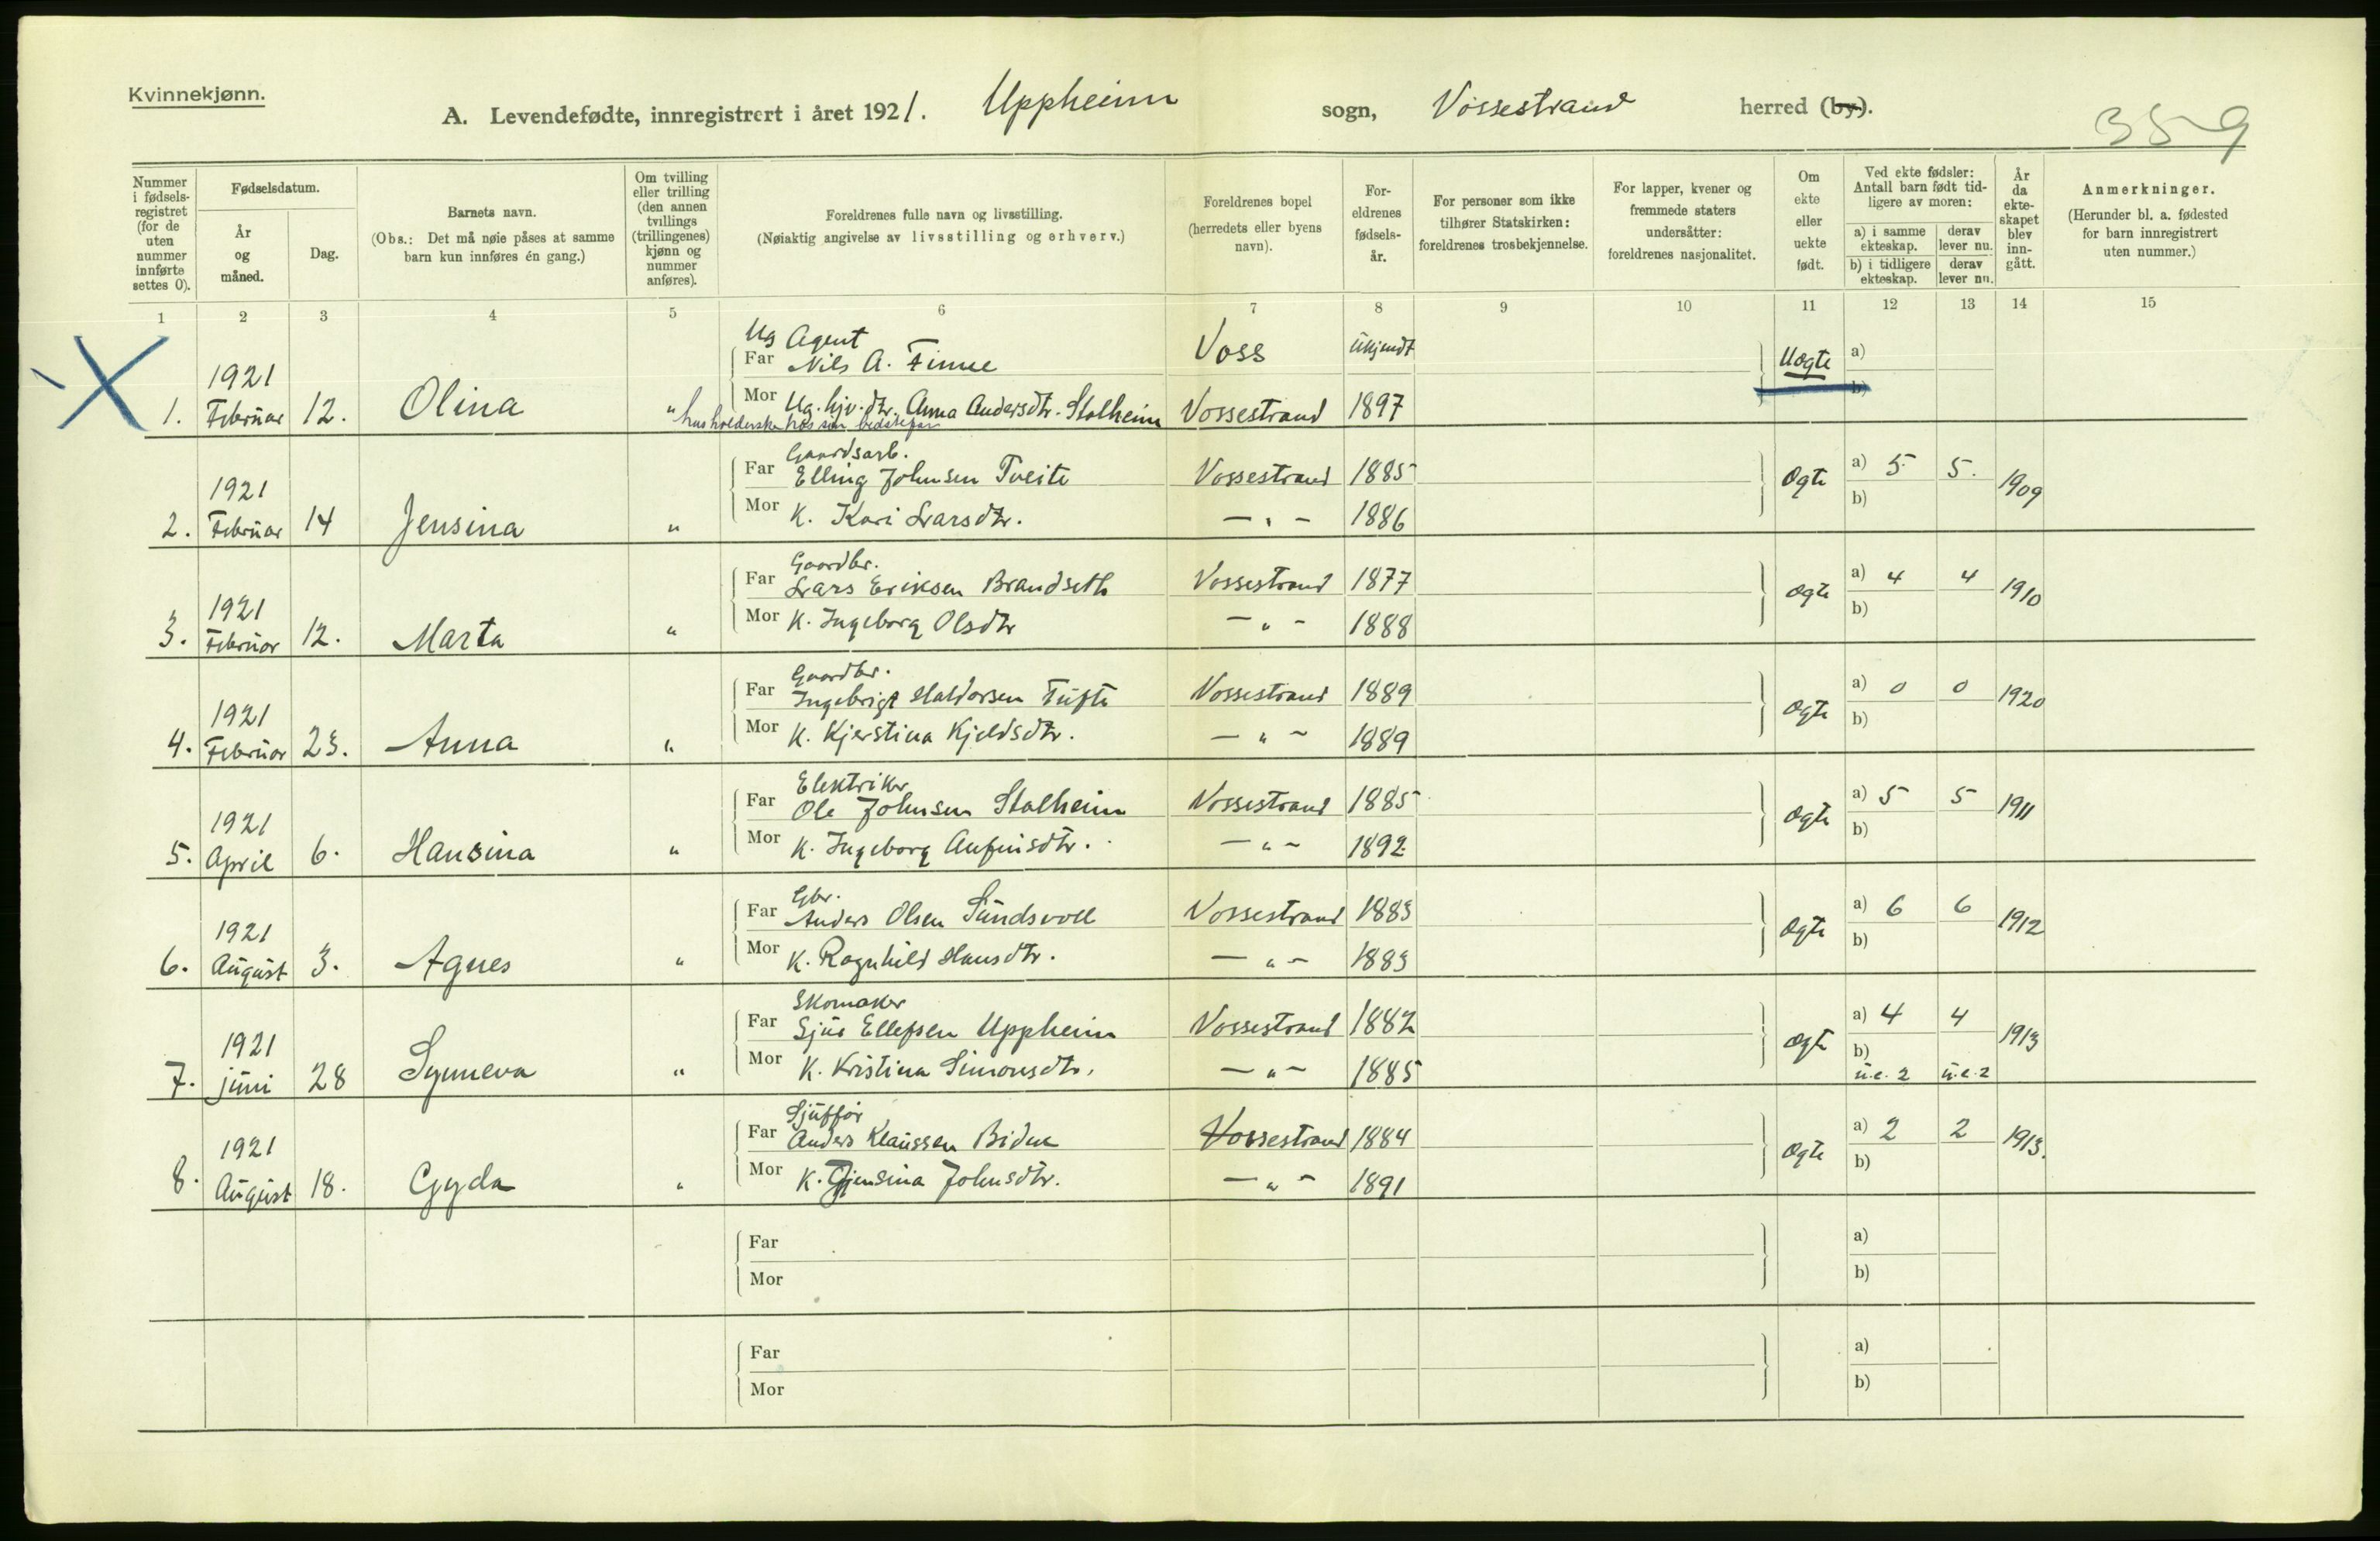 Kvinnekjønn.
A. Levendefødte, innregistrert i året 1921. Uppheim sogn, Vossestrand herred (by).
359
Nummer i fødselsregistret (for de uten nummer innførte settes 0).
Fødselsdatum.
År og måned.
Dag.
Barnets navn.
(Obs.: Det må nøie påses at samme barn kun innføres én gang.)
Om tvilling eller trilling (den annen tvillings (trillingenes) kjønn og nummer anføres).
Foreldrenes fulle navn og livsstilling.
(Nøiaktig angivelse av livsstilling og erhverv.)
Foreldrenes bopel (herredets eller byens navn).
Foreldrenes fødselsår.
For personer som ikke tilhører Statskirken: foreldrenes trosbekjennelse.
For lapper, kvener og fremmede staters undersåtter: foreldrenes nasjonalitet.
Om ekte eller uekte født.
Ved ekte fødsler: Antall barn født tidligere av moren:
a) i samme ekteskap.
derav lever nu.
b) i tidligere ekteskap.
derav lever nu.
År da ekteskapet blev inngått.
Anmerkninger.
(Herunder bl. a. fødested for barn innregistrert uten nummer.)
1 2 3 4 5 6 7 8 9 10 11 12 13 14 15
Ug Agent
Far Nils A. Finne Voss Ukjendt Uegte a)
1921
1. Februar 12. Olina " Mor Ug. hjv. dtr. Anna Andersdtr. Stalheim Vossestrand 1897 b)
husholderske hos sin bedstefar
Gaardsarb.
Far Elling Johnsen Tveite Vossestrand 1885 Ogte a) 5 5. 1909
1921
2. Februar 14 Jensina " Mor K. Kari Larsdtr. — " — 1886 b)
Gaardbr.
Far Lars Eriksen Brandseth Vossestrand 1877 Ogte a) 4 4 1910
1921
3. Februar 12. Marta " Mor K. Ingeborg Olsdtr — " — 1888 b)
Gaardbr.
Far Ingebrigt Haldorsen Tufte Vossestrand 1889 Ogte a) 0 0 1920
1921
4. Februar 23. Anna " Mor K. Kjerstina Kjeldsdtr. — " — 1889 b)
Elektriker
Far Ole Johnsen Stalheim Vossestrand 1885 Ogte a) 5 5 1911
1921
5. April 6. Hansina " Mor K. Ingeborg Anfinsdtr. — " — 1892 b)
Gbr.
Far Anders Olsen Sundsvoll Vossestrand 1883 Ogte a) 6 6 1912
1921
6. August 3. Agnes " Mor K. Ragnhild Hansdtr. — " — 1883 b)
Skomaker
Far Sjur Ellefsen Uppheim Vossestrand 1882 Ogte a) 4 4 1913
1921
7. juni 28 Synneva " Mor K. Kristina Simonsdtr. — " — 1885 b) u.e. 2 u.e. 2
Sjuffør
Far Anders Klaussen Bidne Vossestrand 1884 Ogte a) 2 2 1913.
1921
8. August 18. Gyda " Mor K. Gjensina Johnsdtr. — " — 1891 b)
Far a)
Mor b)
Far a)
Mor b)